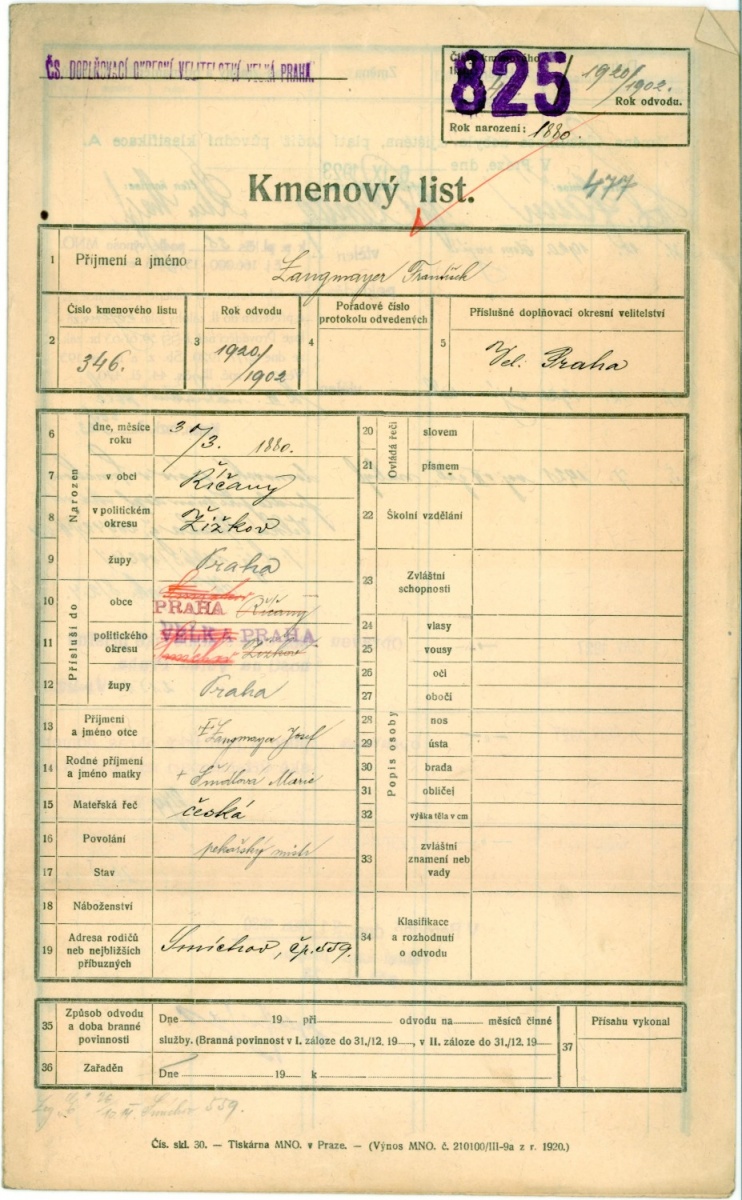 ČS. DOPLŇOVACÍ OKRESNÍ VELITELSTVÍ VELKÁ PRAHA.
825
1920/1902.
Rok odvodu.
Rok narození: 1880.
Kmenový list.
477
1 Příjmení a jméno Langmayer František
Číslo kmenového listu
2 346.
Rok odvodu
3 1920/1902
Pořadové číslo protokolu odvedených
4
Příslušné doplňovací okresní velitelství
5 Vel. Praha
Narozen
6 dne, měsíce roku 30/3. 1880.
7 v obci Říčany
8 v politickém okresu Žižkov
9 župy Praha
Přísluší do
10 obce Smíchov PRAHA Říčany
11 politického okresu VELKÁ PRAHA Smíchov Žižkov
12 župy Praha
13 Příjmení a jméno otce Langmayer Josef
14 Rodné příjmení a jméno matky + Šmídlová Marie
15 Mateřská řeč česká
16 Povolání pekařský mistr
17 Stav
18 Náboženství
19 Adresa rodičů neb nejbližších příbuzných Smíchov, čp. 559.
Ovládá řeči
20 slovem
21 písmem
22 Školní vzdělání
23 Zvláštní schopnosti
Popis osoby
24 vlasy
25 vousy
26 oči
27 obočí
28 nos
29 ústa
30 brada
31 obličej
32 výška těla v cm
33 zvláštní znamení neb vady
34 Klasifikace a rozhodnutí o odvodu
35 Způsob odvodu a doba branné povinnosti
Dne 19 při odvodu na měsíců činné
služby. (Branná povinnost v I. záloze do 31./12. 19 , v II. záloze do 31./12. 19
36 Zařaděn
Dne 19 k
37 Přísahu vykonal
Smíchov 559.
Čís. skl. 30. — Tiskárna MNO. v Praze. — (Výnos MNO. č. 210100/III-9a z r. 1920.)